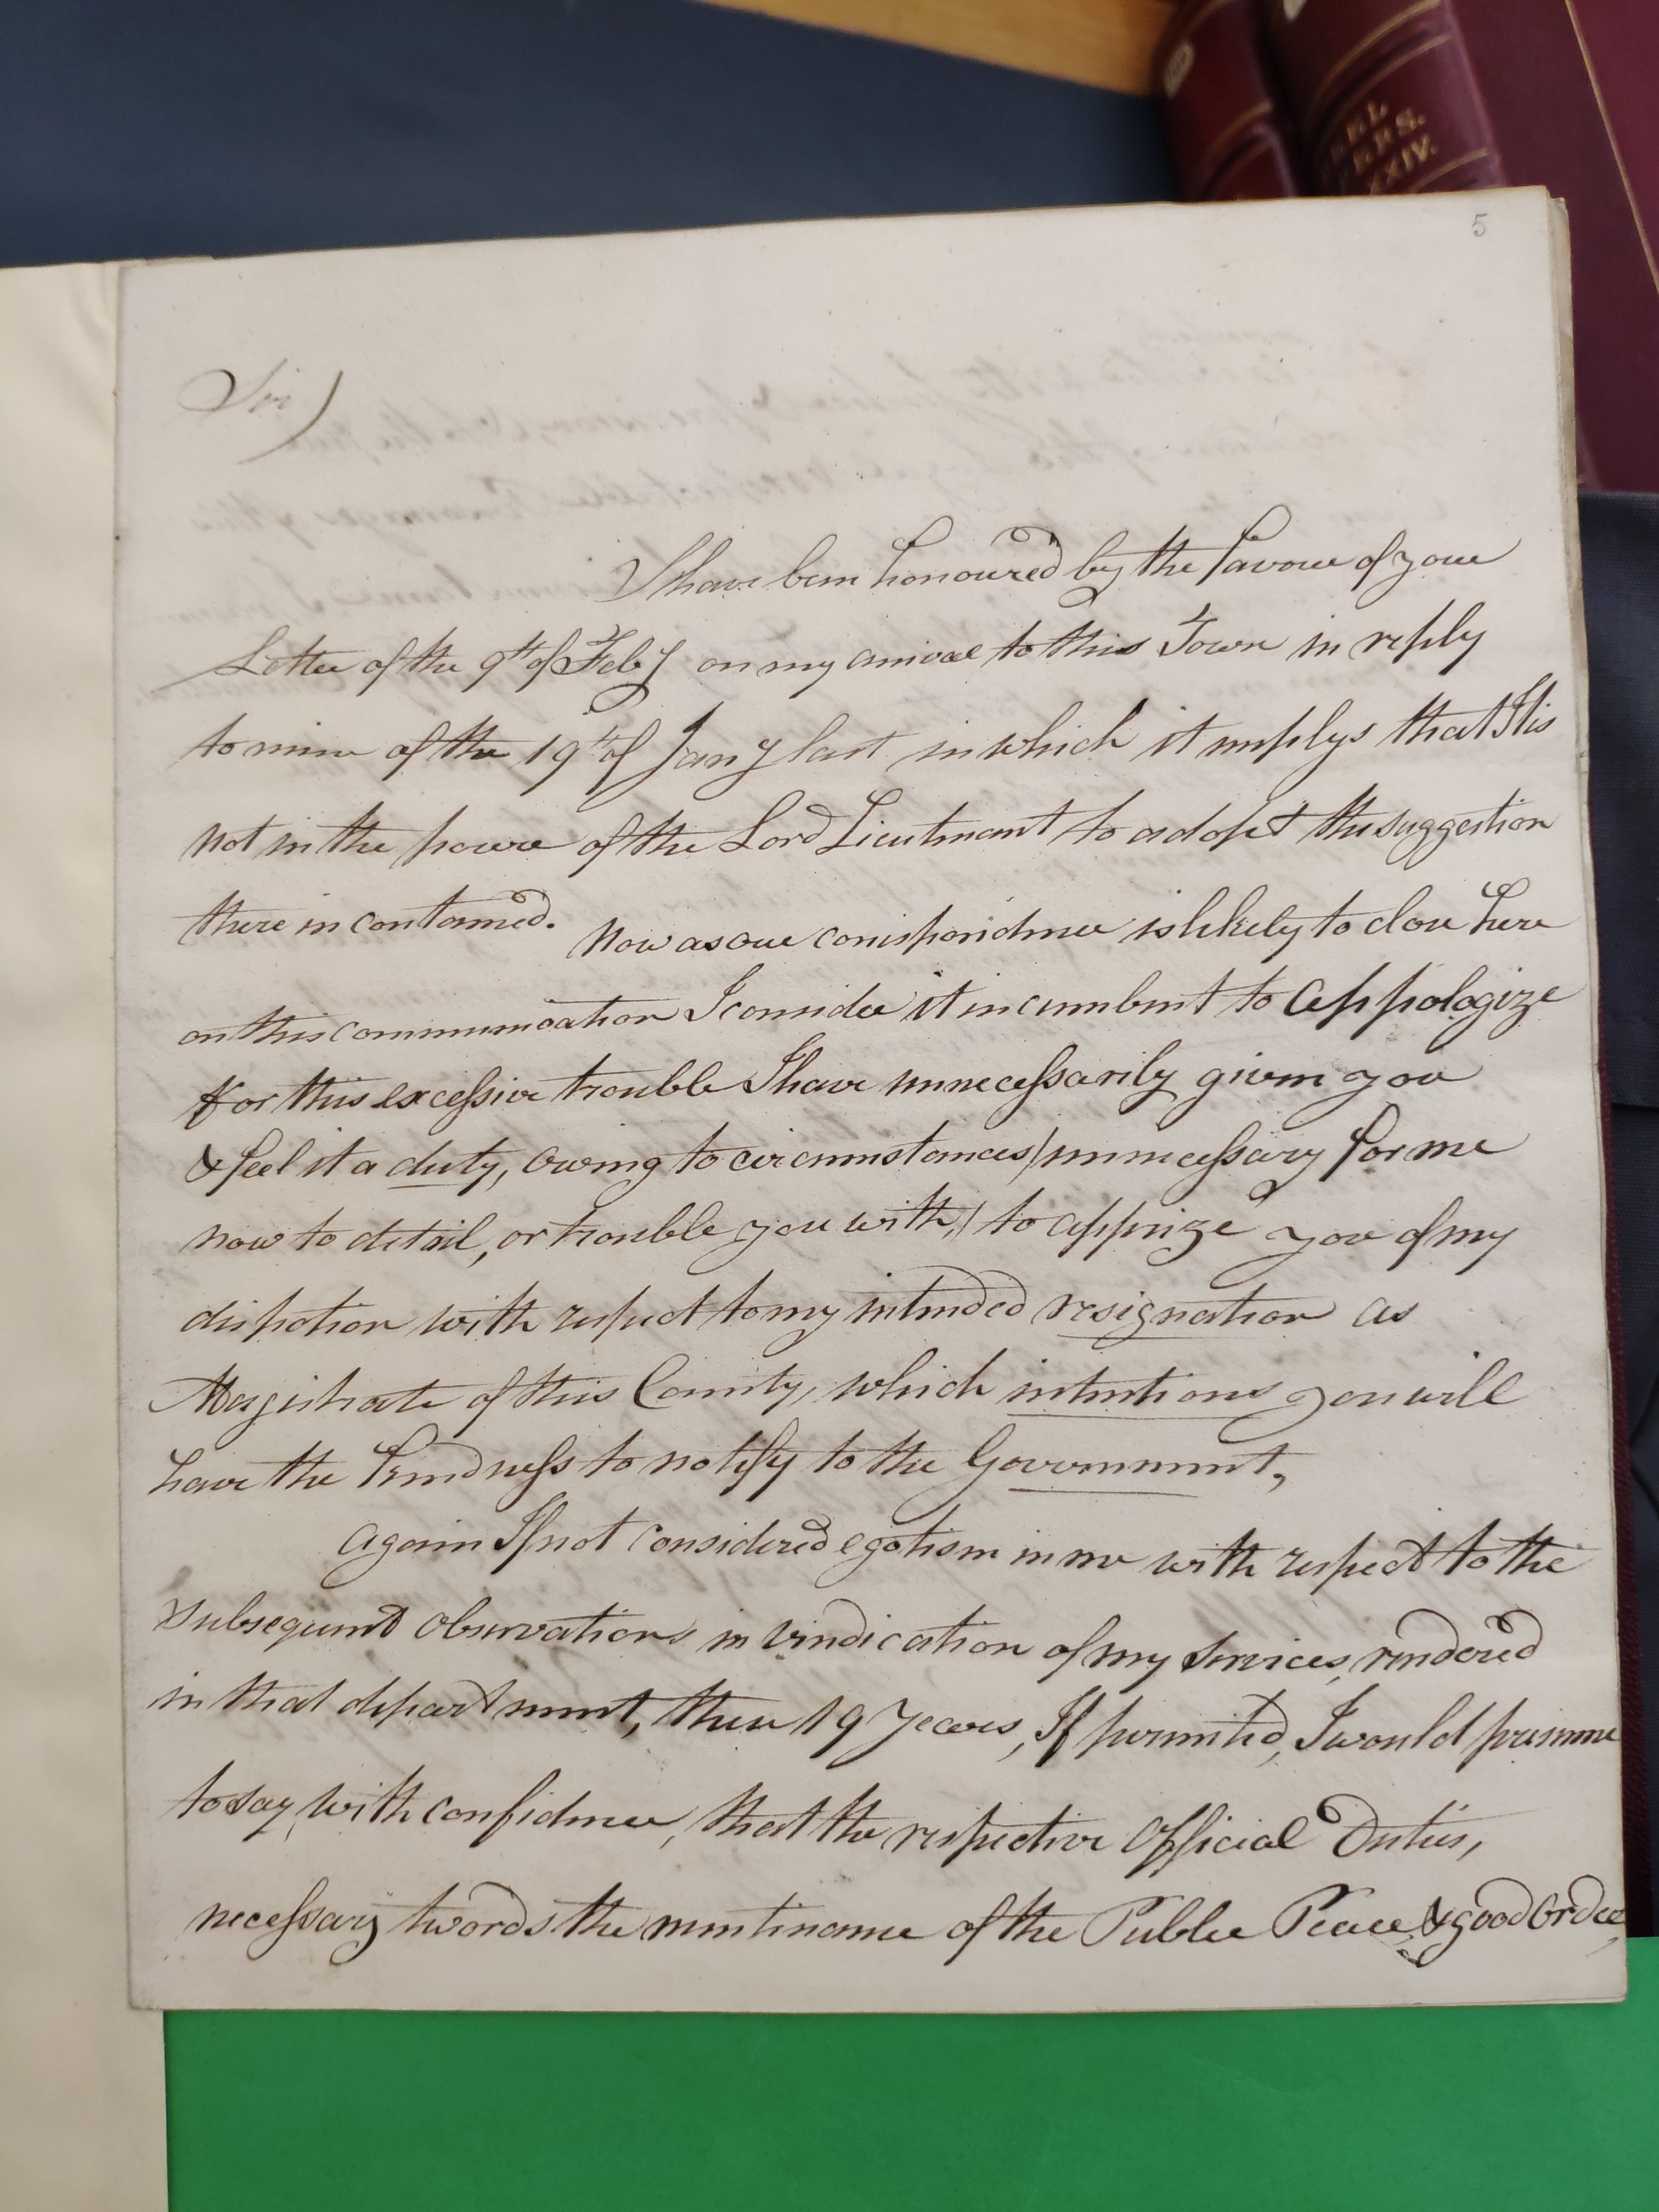 EL
ERS.
XXIV.
5
Sir)
I have been honoured by the favour of your
Letter of the 9th of Feby on my arrival to this Town in reply
to mine of the 19th of Jany last in which it implys that It is
not in the power of the Lord Lieutenant to adopt the suggestion
there in contained. Now as our correspondence is likely to close here
on this communication I consider it incumbent to appologize
for this excessive trouble I have unnecessarily given you
& feel it a duty, owing to circumstances (unnecessary for me
now to detail, or trouble you with,) to apprize you of my
dispotion with respect to my intended resignation as
Magistrate of this County, which intentions you will
have the kindness to notify to the Government,
again If not considered egotism in me with respect to the
subsequent observations in vindication of my services, rendered
in that department, these 19 years, If permited, I would presume
to say, with confidence, that the respective Official Duties,
necessary twords the mentinance of the Public Peace & good Order,